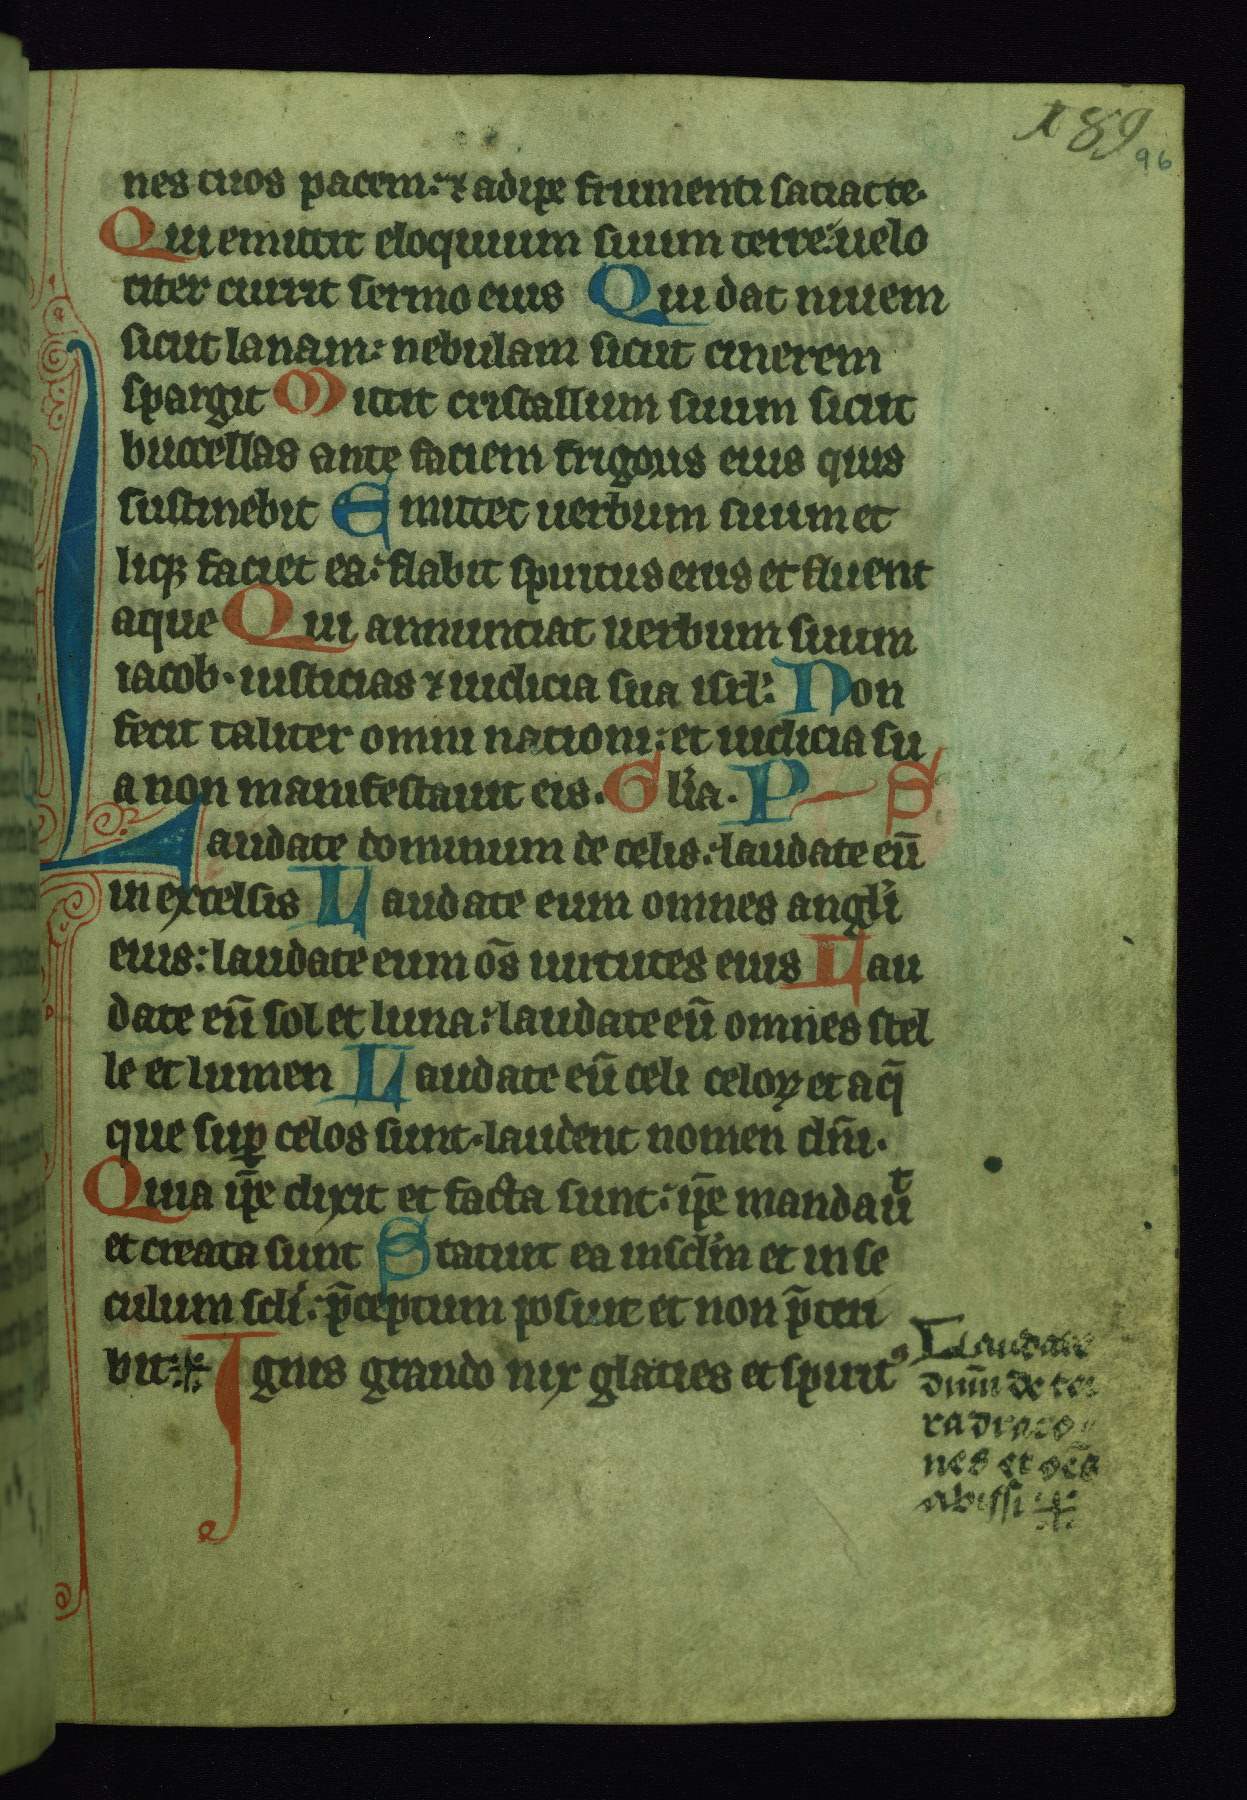 189
96
nes tuos pacem: ⁊ adipe frumenti satiat te.
Qui emittit eloquium suum terre: uelo
citer currit sermo eius Qui dat niuem
sicut lanam: nebulam sicut cinerem
spargit Mittit cristallum suum sicut
buccellas ante faciem frigoris eius quis
sustinebit Emittet uerbum suum et
liq̄ faciet ea: flabit spiritus eius et fluent
aque Qui annunciat uerbum suum
iacob. iusticias ⁊ iudicia sua isrl̓: Non
fecit taliter omni nationi: et iudicia su
a non manifestauit eis. Gl̓ia. P S
Laudate dominum de celis: laudate eū
in excelsis Laudate eum omnes angl̓i
eius: laudate eum oēs uirtutes eius Lau
date eū sol et luna: laudate eū omnes stel
le et lumen Laudate eū celi celoꝝ et aq̄
que suꝑ celos sunt. laudent nomen dn̄i.
Quia ip̄e dixit et facta sunt: ip̄e mandauͭ
et creata sunt Statuit ea in scl̓m et in se
culum scl̓i: p̄ceptum posuit et non p̄teri
bit: Ignis grando nix glacies et spirit⁹
Laudate
dn̄m de ter
ra draco
nes et oēs
abissi